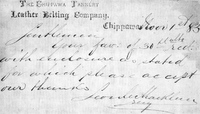 THE CHIPPAWA TANNERY
Leather Belting Company.
Chippawa Nov 1st 18
Gentlemen
Your favor of 30th
with enclosure as stated
for which please accept
our thanks